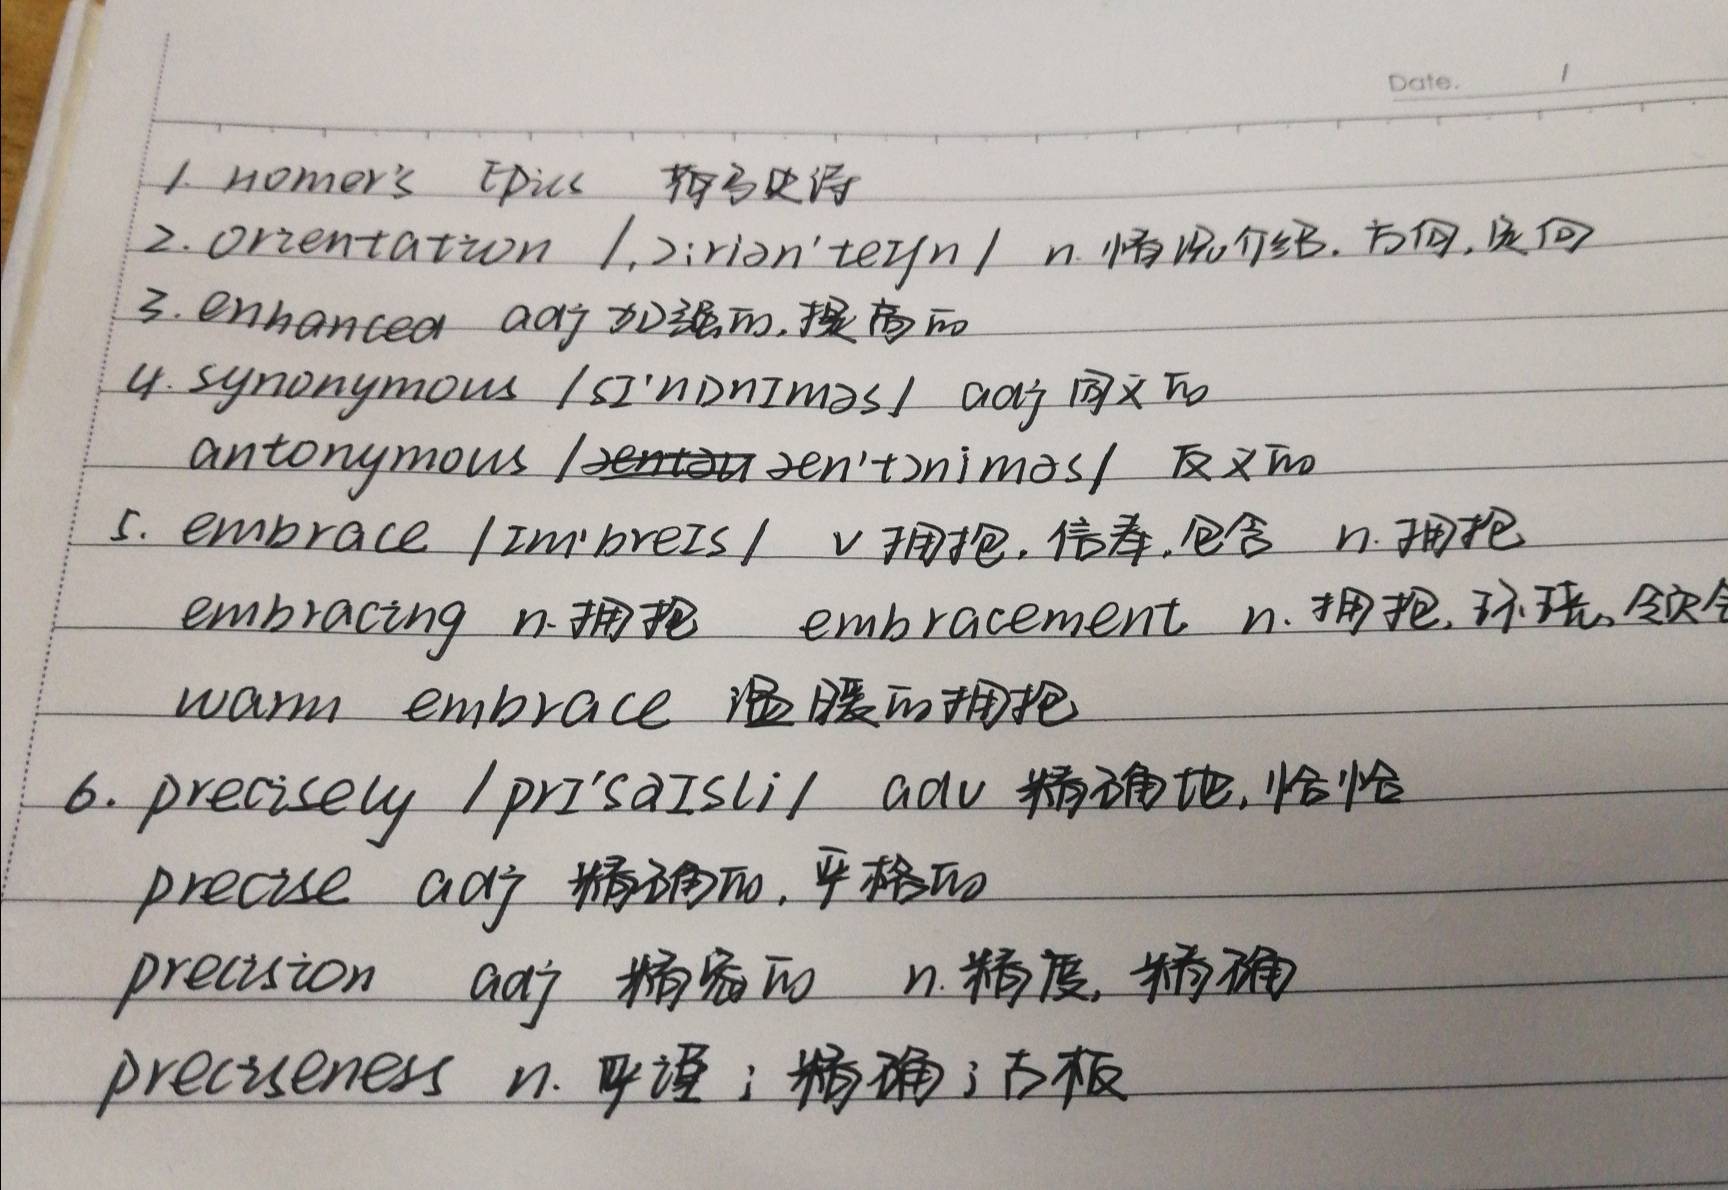 Date. /
1. Homer's Epics 荷马史诗
2. orientation /ˌɔːriən'teɪʃn/ n. 情况介绍. 方向, 定向
3. enhanced adj 加强的, 提高的
4. synonymous /sɪ'nɒnɪməs/ adj 同义的
antonymous /æn'tɔniməs/ 反义的
5. embrace /ɪm'breɪs/ v 拥抱, 信奉, 包含 n. 拥抱
embracing n. 拥抱 embracement n. 拥抱, 环绕, 领会
warm embrace 温暖的拥抱
6. precisely /prɪ'saɪsli/ adv 精确地, 恰恰
precise adj 精确的, 严格的
precision adj 精密的 n. 精度, 精确
preciseness n. 严谨；精确；古板